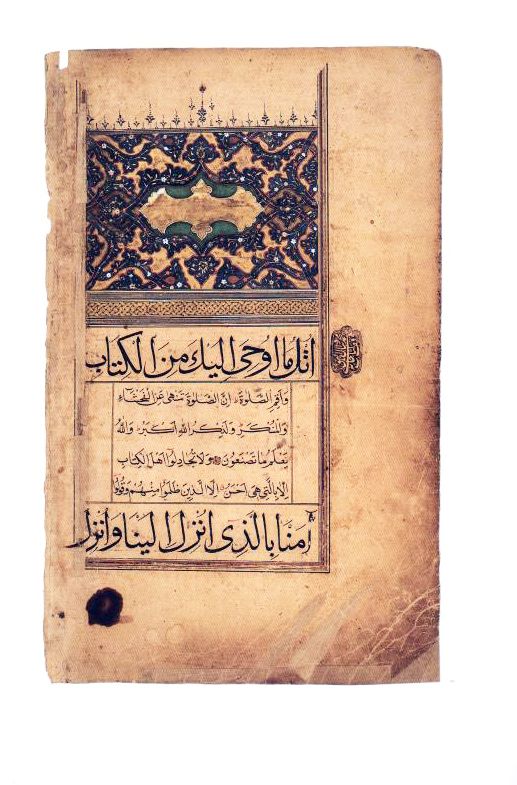 اتل ما اوحی الیك من الکتاب
واقم الصلوة ان الصلوة تنهی عن الفحشاء
والمنکر ولذکر الله اکبر والله
یعلم ما تصنعون ولا تجادلوا اهل الکتاب
الا بالتی هی احسن الا الذین ظلموا منهم وقولوا
امنا بالذی انزل الینا وانزل